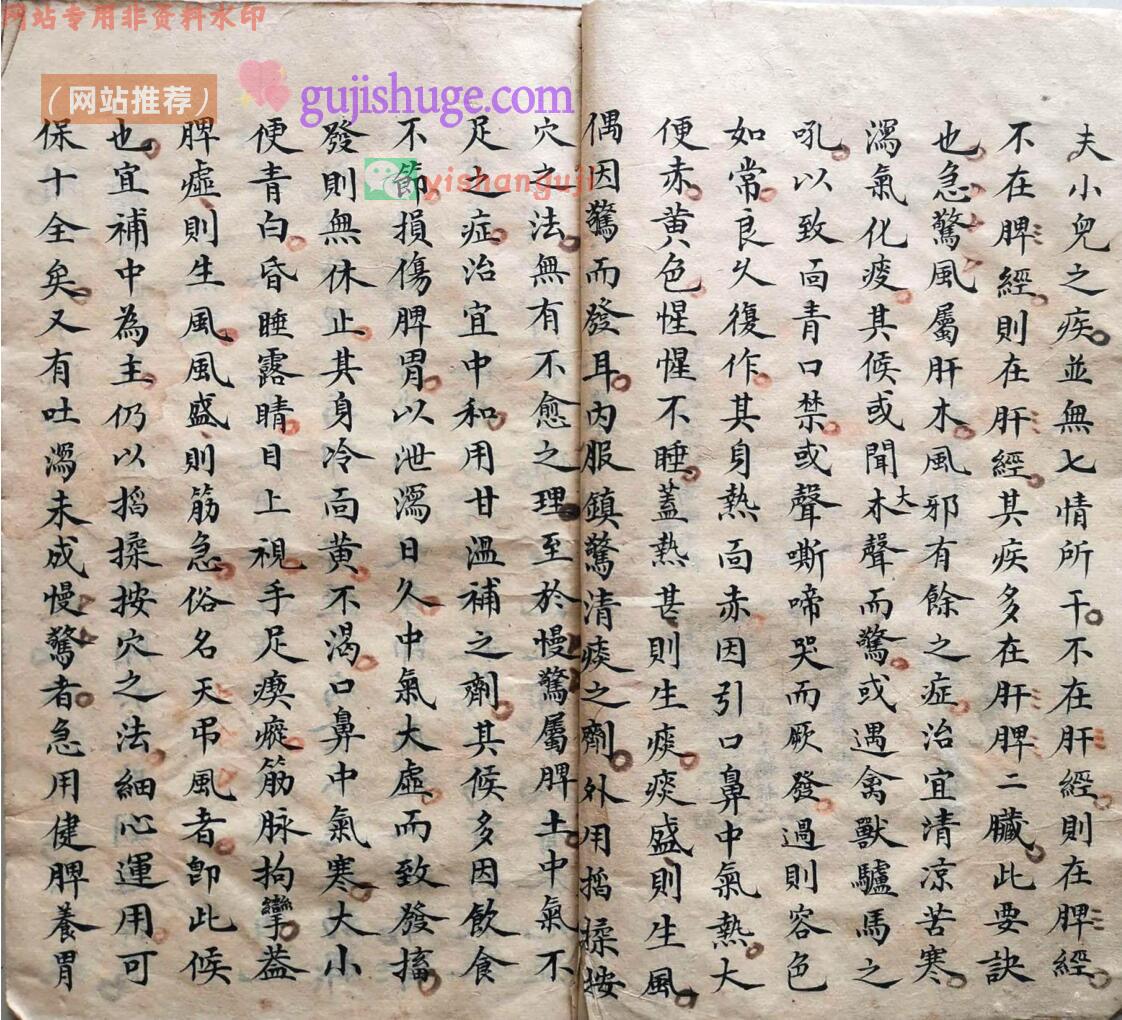 网站专用非资料水印
（网站推荐）
gujishuge.com
yishanguji
夫小兒之疾並無七情所干不在肝經則在脾經
不在脾經則在肝經其疾多在肝脾二臟此要訣
也急驚風屬肝木風邪有餘之症治宜清凉苦寒
瀉氣化痰其候或聞木大聲而驚或遇禽獸驢馬之
吼以致面青口禁或聲嘶啼哭而厥發過則容色
如常良久復作其身熱面赤因引口鼻中氣熱大
便赤黄色惺惺不睡蓋熱甚則生痰痰盛則生風
偶因驚而發耳内服鎮驚清痰之劑外用掐揉按
穴之法無有不愈之理至於慢驚屬脾土中氣不
足之症治宜中和用甘溫補之劑其候多因飲食
不節損傷脾胃以泄瀉日久中氣大虛而致發搐
發則無休止其身冷面黄不渴口鼻中氣寒大小
便青白昏睡露睛目上視手足瘈瘲筋脉拘攣蓋
脾虛則生風風盛則筋急俗名天弔風者卽此候
也宜補中為主仍以掐揉按穴之法細心運用可
保十全矣又有吐瀉未成慢驚者急用健脾養胃